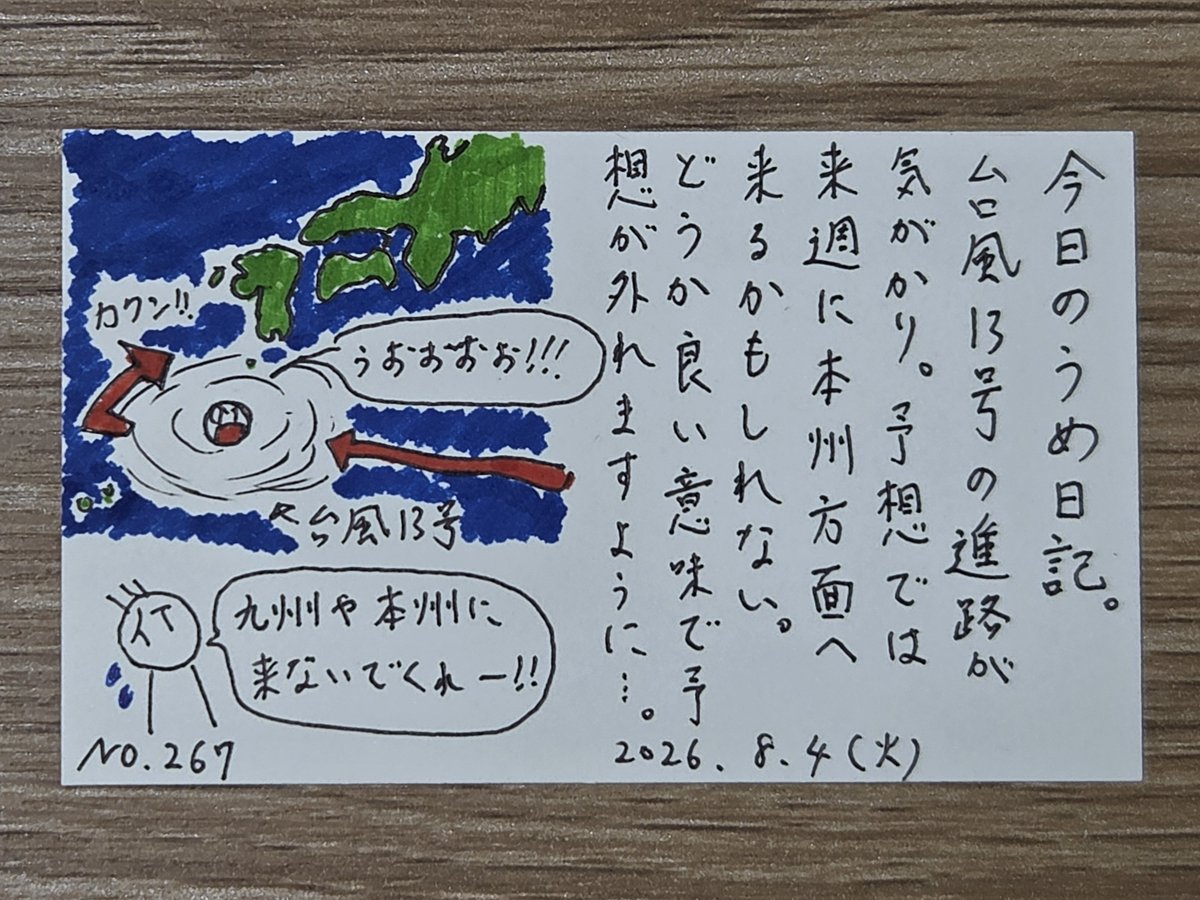 今日のうめ日記。
台風13号の進路が
気がかり。予想では
来週に本州方面へ
来るかもしれない。
どうか良い意味で予
想が外れますように…。
2026.8.4(火)
カクン!!
うおおおお!!!
台風13号
九州や本州に
来ないでくれー!!
NO.267